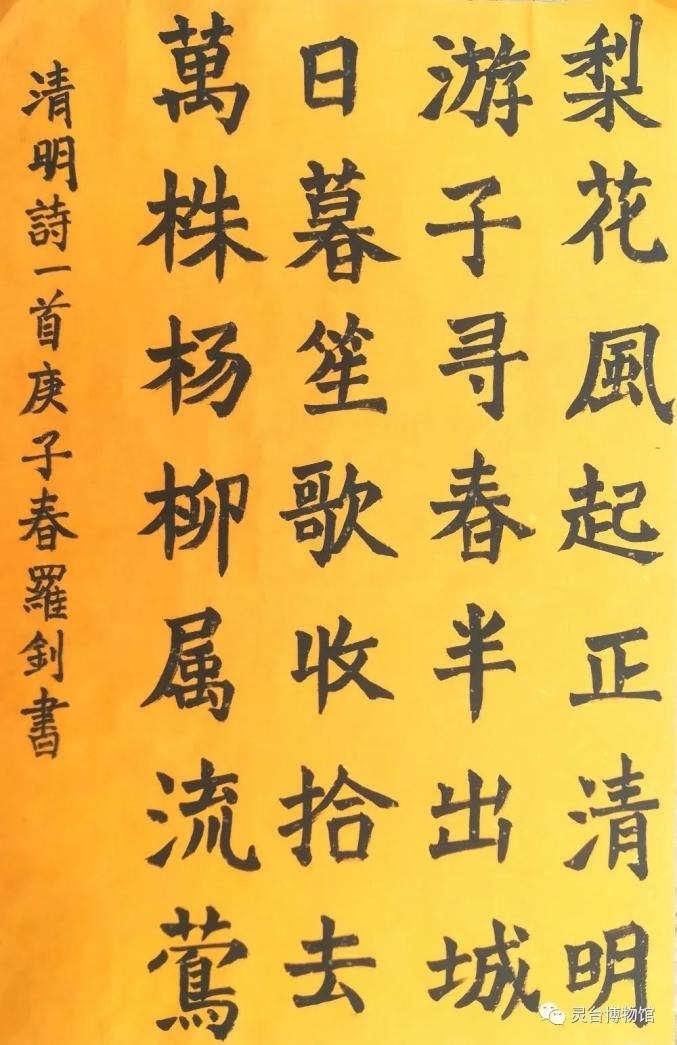 梨花風起正清明
游子寻春半出城
日暮笙歌收拾去
萬株杨柳属流莺
清明詩一首庚子春羅釗書
灵台博物馆